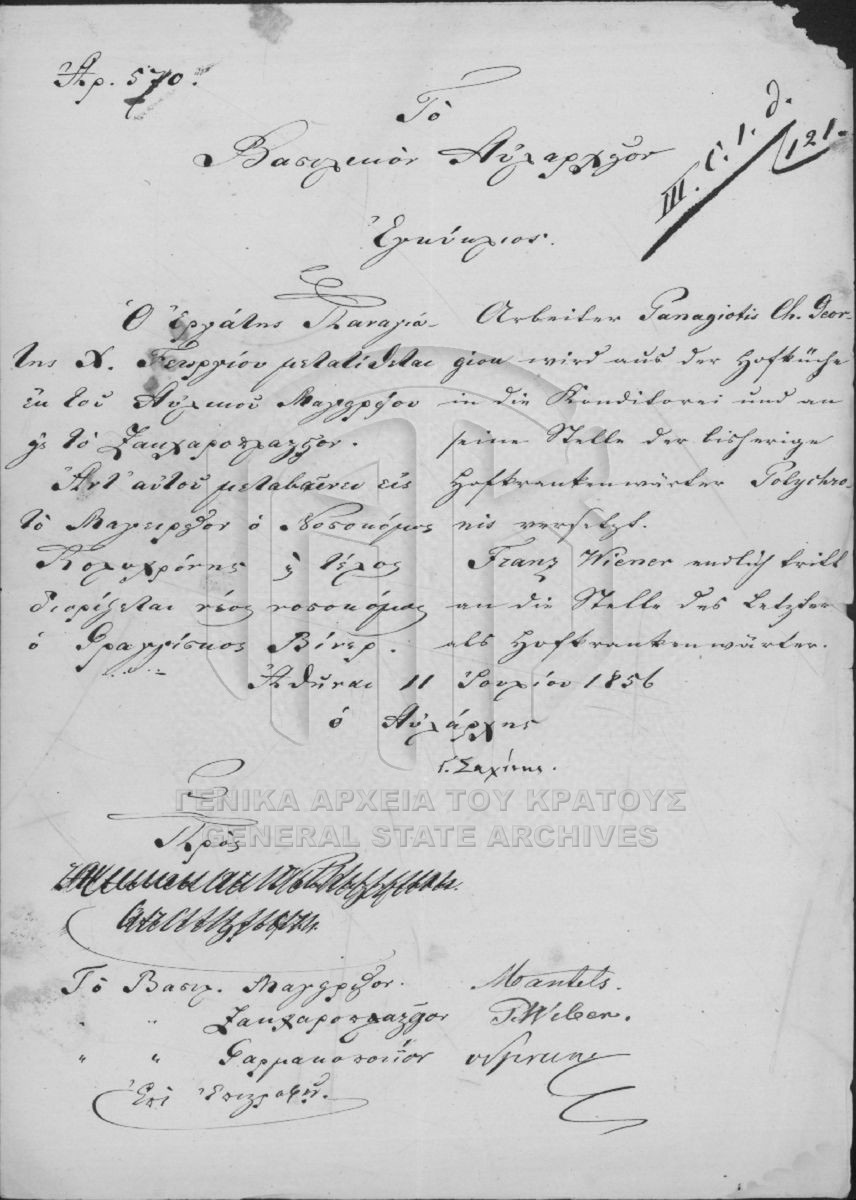 Ἀρ. 570.
III. C. 1. d.
121.
Τὸ
Βασιλικὸν Αὐλαρχεῖον
Ἐγκύκλιος.
Ὁ Ἐργάτης Παναγιώ-
της Χ. Γεωργίου μετατίθεται
ἐκ τοῦ Αὐλικοῦ Μαγειρείου
εἰς τὸ Ζακχαροπλαστεῖον.
Ἀντ' αὐτοῦ μεταβαίνει εἰς
τὸ Μαγειρεῖον ὁ Νοσοκόμος
Πολυχρόνης καὶ τέλος
διορίζεται νέος νοσοκόμος
ὁ Φραγγίσκος Βίνερ.
Arbeiter Panagiotis Ch. Geor-
giou wird aus der Hofküche
in die Konditorei und an
seine Stelle der bisherige
Hofkrankenwärter Polychro-
nis versetzt.
Franz Wiener endlich tritt
an die Stelle des Letzter
als Hofkrankenwärter.
Ἀθῆναι 11 Ἰουλίου 1856
ὁ Αὐλάρχης
Πρὸς
Τὸ Βασιλ. Μαγειρεῖον. Mantels.
" " Ζακχαροπλαστεῖον P. Weber.
" " Φαρμακοποιεῖον
Ἐπὶ Ἐπιστροφῇ.
ΓΕΝΙΚΑ ΑΡΧΕΙΑ ΤΟΥ ΚΡΑΤΟΥΣ
GENERAL STATE ARCHIVES